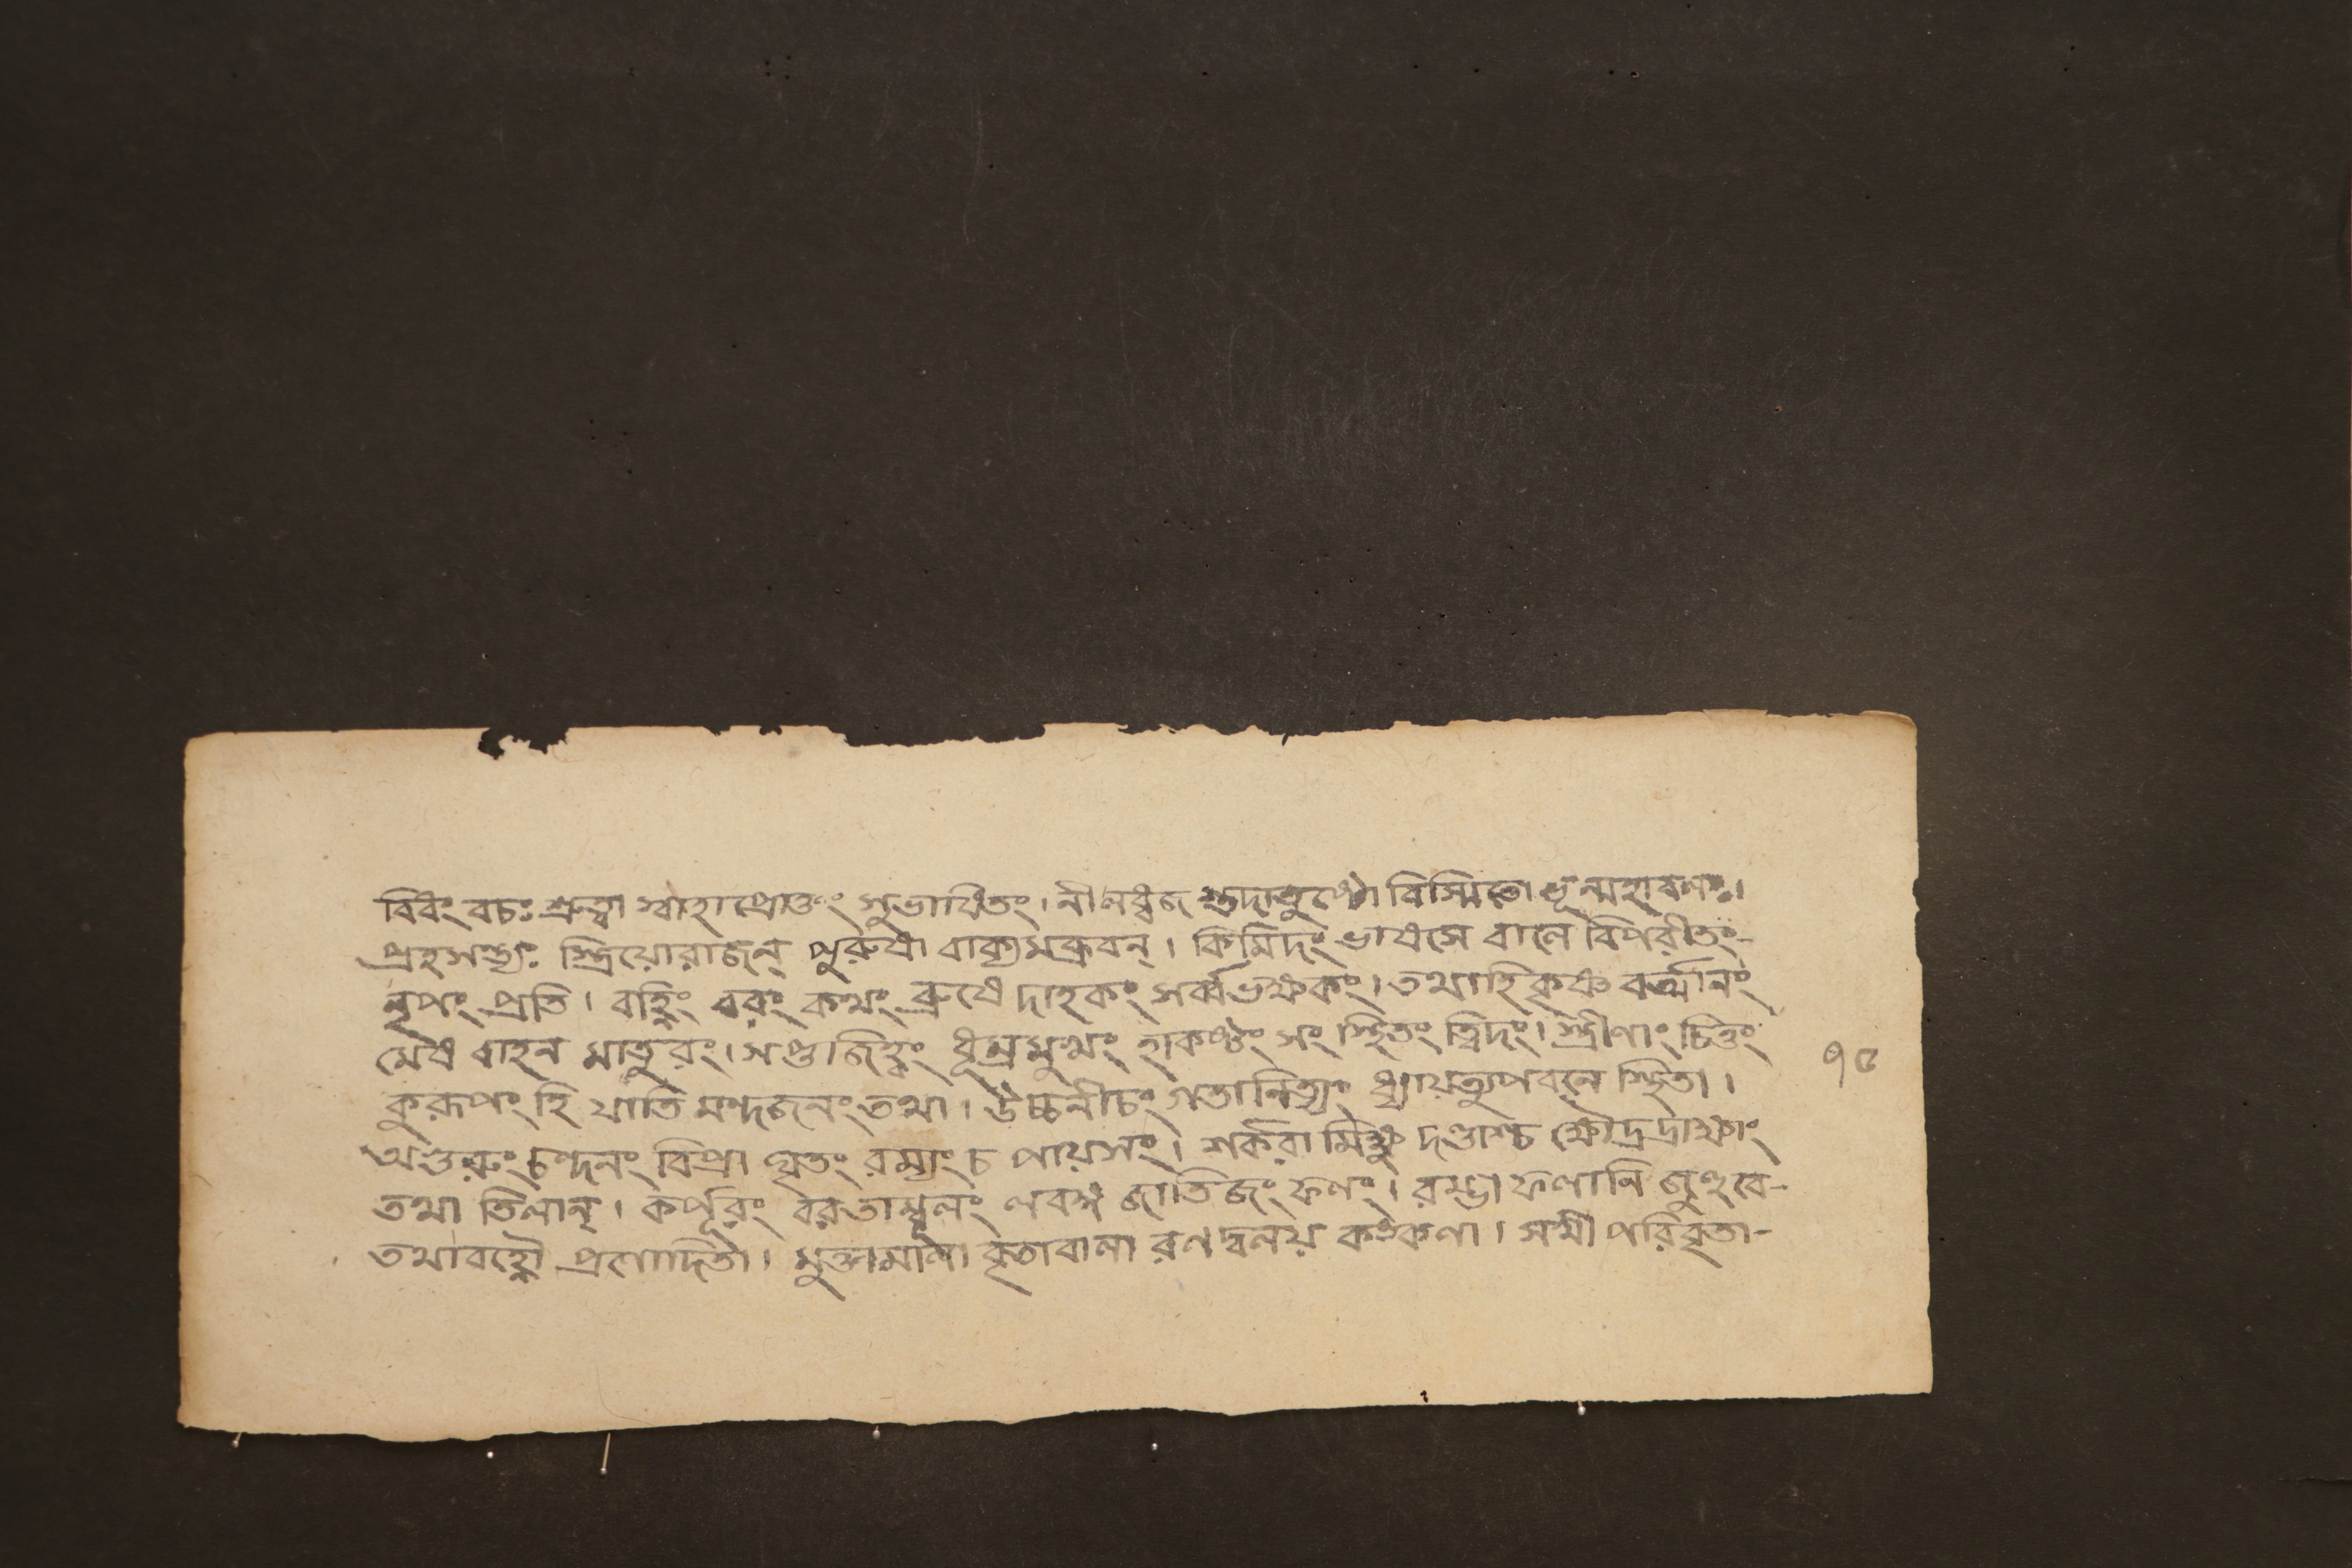 বিধং বচঃ শ্রুত্বা স্বাহাপ্রোক্তং সুভাষিতং। নীলধ্বজ বিস্মিতো ভূন্মহাবলঃ।
প্রহসন্ত্যঃ স্ত্রিয়োরাজন্ পুরুষা বাক্যমব্রুবন্। কিমিদং ভাষসে বালে বিপরীতং-
নৃপং প্রতি। বহ্নিং বরং কথং ব্রুষে দাহকং সর্ব্বভক্ষকং। তথাহি কৃষ্ণ বর্ত্মানং
মেষ বাহন মাতুরং। সপ্তজিহ্বং ধূম্রমুখং সং স্থিতং ত্বিদং। স্ত্রীণাং চিত্তং
কুরূপং হি যাতি মন্দজনং তথা। উচ্চনীচং গতানিত্যং ধ্যায়ত্যুপবনে স্থিতা।
অগুরুং চন্দনং বিপ্রা ঘৃতং রম্যং চ পায়সং। শর্করা মিক্ষু দণ্ডাশ্চ ক্ষৌদ্রদ্রাক্ষাং
তথা তিলান্। কর্পূরং বরতাম্বূলং লবঙ্গ জাতিজং ফলং। রম্ভা ফলানি জুহুবে-
তথাবহ্নৌ প্রণোদিতা। মুক্তামালা বৃতাবালা রণদ্বলয় কঙ্কণা। সখী পরিবৃতা-
৭৫